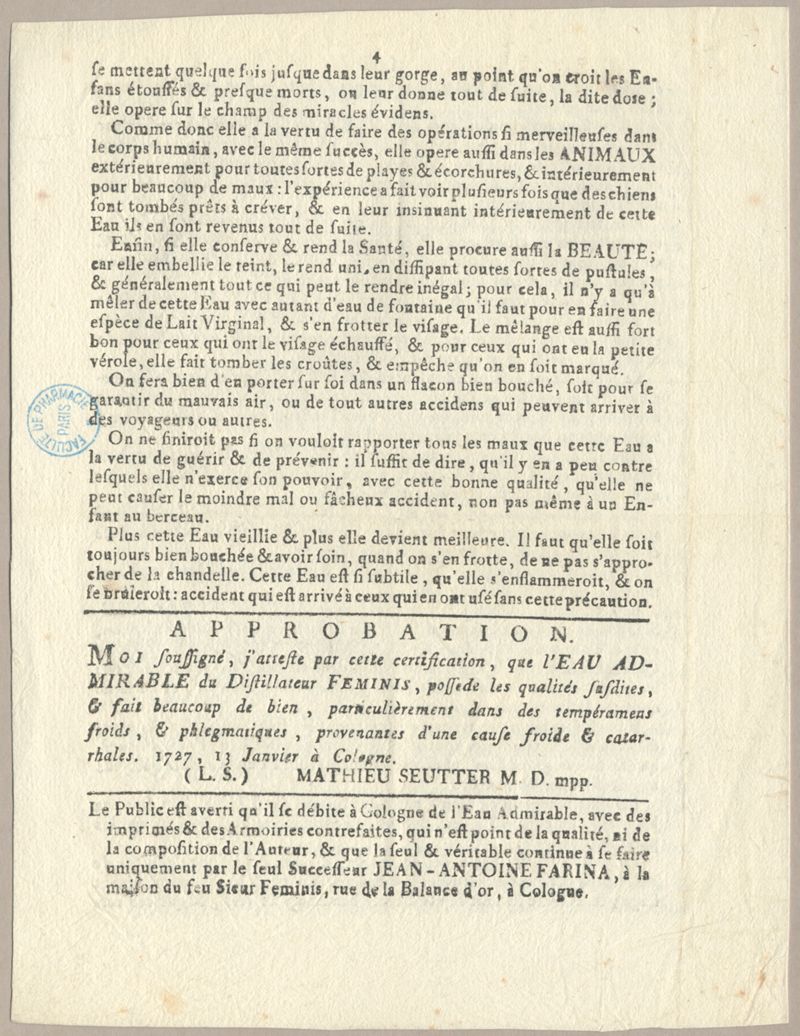 4
ſe mettent quelque fois juſque dans leur gorge, au point qu'on croit les En-
fans étouffés & preſque morts, on leur donne tout de ſuite, la dite doſe ;
elle opere ſur le champ des miracles évidens.
Comme donc elle a la vertu de faire des opérations ſi merveilleuſes dans
le corps humain, avec le même ſuccès, elle opere auſſi dans les ANIMAUX
extérieurement pour toutes ſortes de playes & écorchures, & intérieurement
pour beaucoup de maux : l'expérience a fait voir pluſieurs fois que des chiens
ſont tombés prêts à créver, & en leur inſinuant intérieurement de cette
Eau ils en ſont revenus tout de ſuite.
Enfin, ſi elle conſerve & rend la Santé, elle procure auſſi la BEAUTÉ ;
car elle embellie le teint, le rend uni, en diſſipant toutes ſortes de puſtules ,
& généralement tout ce qui peut le rendre inégal ; pour cela, il n'y a qu'à
mêler de cette Eau avec autant d'eau de fontaine qu'il faut pour en faire une
eſpèce de Lait Virginal, & s'en frotter le viſage. Le mêlange eſt auſſi fort
bon pour ceux qui ont le viſage échauffé, & pour ceux qui ont eu la petite
vérole, elle fait tomber les croûtes, & empêche qu'on en ſoit marqué.
On fera bien d'en porter ſur ſoi dans un flacon bien bouché, ſoit pour ſe
garantir du mauvais air, ou de tout autres accidens qui peuvent arriver à
des voyageurs ou autres.
On ne finiroit pas ſi on vouloit rapporter tous les maux que cette Eau a
la vertu de guérir & de prévenir : il ſuffit de dire, qu'il y en a peu contre
leſquels elle n'exerce ſon pouvoir, avec cette bonne qualité, qu'elle ne
peut cauſer le moindre mal ou fâcheux accident, non pas même à un En-
fant au berceau.
Plus cette Eau vieillie & plus elle devient meilleure. Il faut qu'elle ſoit
toujours bien bouchée & avoir ſoin, quand on s'en frotte, de ne pas s'appro-
cher de la chandelle. Cette Eau eſt ſi ſubtile , qu'elle s'enflammeroit, & on
ſe brûleroit : accident qui eſt arrivé à ceux qui en ont uſé ſans cette précaution.
APPROBATION.
MOI ſouſſigné, j'atteſte par cette certification, que l'EAU AD-
MIRABLE du Diſtillateur FEMINIS, poſſede les qualités ſuſdites,
& fait beaucoup de bien , particulièrement dans des tempéramens
froids , & phlegmatiques , provenantes d'une cauſe froide & catar-
rhales. 1727, 13 Janvier à Cologne.
( L. S. ) MATHIEU SEUTTER M. D. mpp.
Le Public eſt averti qu'il ſe débite à Cologne de l'Eau Admirable, avec des
imprimés & des Armoiries contrefaites, qui n'eſt point de la qualité, ni de
la compoſition de l'Auteur, & que la ſeul & véritable continue à ſe faire
uniquement par le ſeul Succeſſeur JEAN-ANTOINE FARINA, à la
maiſon du feu Sieur Feminis, rue de la Balance d'or, à Cologne.
FACULTÉ DE PHARMACIE
PARIS